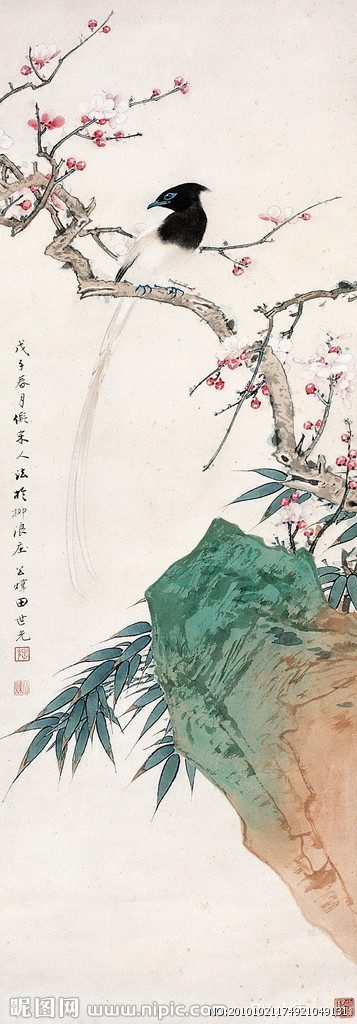 戊子春月儗宋人法於柳浪庄 公煒田世光
昵图网 www.nipic.com
NO:20101021174921049131